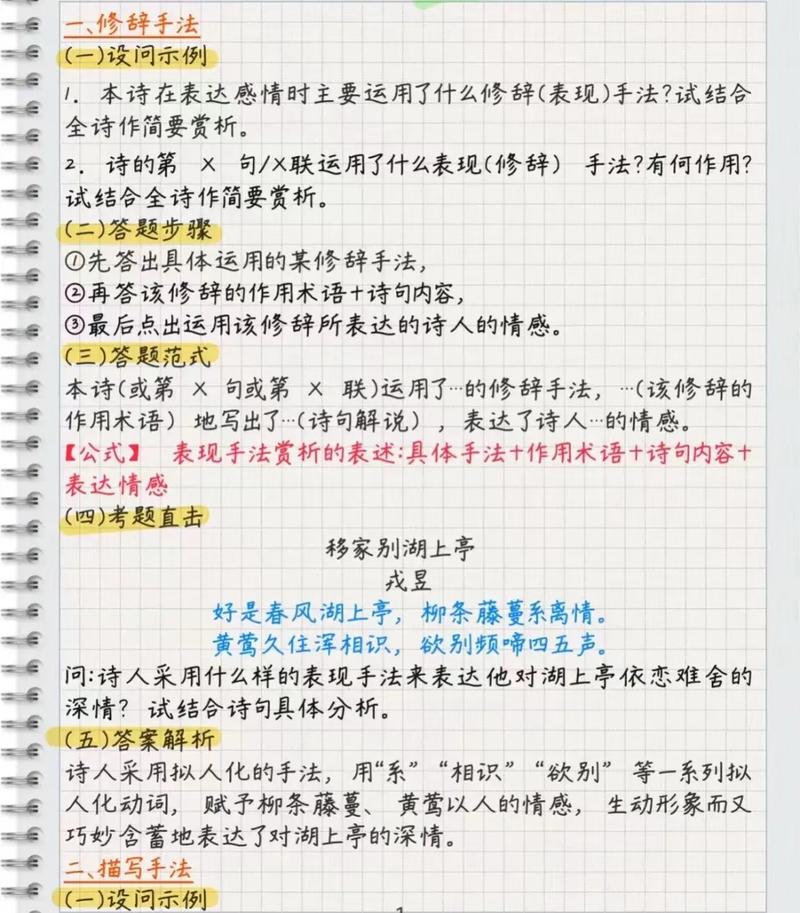 一、修辞手法
(一)设问示例
1. 本诗在表达感情时主要运用了什么修辞(表现)手法?试结合
全诗作简要赏析。
2. 诗的第 X 句/X联运用了什么表现(修辞) 手法?有何作用?
试结合全诗作简要赏析。
(二)答题步骤
①先答出具体运用的某修辞手法,
②再答该修辞的作用术语+诗句内容,
③最后点出运用该修辞所表达的诗人的情感。
(三)答题范式
本诗(或第 X 句或第 X 联)运用了…的修辞手法, …(该修辞的
作用术语) 地写出了…(诗句解说) , 表达了诗人…的情感。
【公式】 表现手法赏析的表述:具体手法+作用术语+诗句内容+
表达情感
(四)考题直击
移家别湖上亭
戎昱
好是春风湖上亭, 柳条藤蔓系离情。
黄莺久住浑相识, 欲别频啼四五声。
问:诗人采用什么样的表现手法来表达他对湖上亭依恋难舍的
深情? 试结合诗句具体分析。
(五)答案解析
诗人采用拟人化的手法, 用“系” “相识” “欲别” 等一系列拟
人化动词, 赋予柳条藤蔓、 黄莺以人的情感, 生动形象而又
巧妙含蓄地表达了对湖上亭的深情。
二、描写手法
(一)设问示例